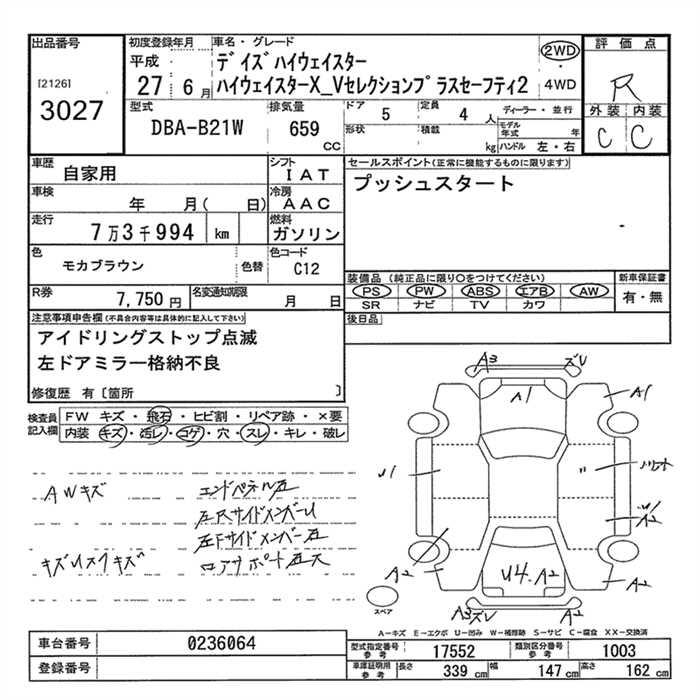 出品番号
[2126]
3027
初度登録年月
平成
27年6月
車名・グレード
ﾃﾞｲｽﾞﾊｲｳｪｲｽﾀｰ
ﾊｲｳｪｲｽﾀｰX_Vｾﾚｸｼｮﾝﾌﾟﾗｽｾｰﾌﾃｨ2
2WD
・
4WD
評価点
R
外装 内装
C C
型式
DBA-B21W
排気量
659
CC
ドア 5
定員 4 人
形状
積載 kg
ディーラー・並行
モデル年式 年
ハンドル 左・右
車歴 自家用
シフト IAT
車検 年 月( 日)
冷房 AAC
走行 7万3千994 km
燃料 ガソリン
色 モカブラウン
色替
色コード C12
R券 7,750円
名変通知期限 月 日
セールスポイント(正常に機能するものに限ります)
プッシュスタート
装備品 (純正品に限り○をつけてください)
PS PW ABS エアB AW
SR ナビ TV カワ
新車保証書
有・無
後日品
注意事項申告欄(不具合内容等は具体的に記入して下さい)
アイドリングストップ点滅
左ドアミラー格納不良
修復歴 有〔箇所 〕
検査員記入欄
FW キズ・飛石・ヒビ割・リペア跡・×要
内装 キズ・汚レ・コゲ・穴・スレ・キレ・破レ
AWキズ
エンドパネル左
左Rサイドメンバー
左Fサイドメンバー
A3
A1
A1
A2
A2
U4.A2
A3
A2
A2
スペア
A-キズ E-エクボ U-凹み W-補修跡 S-サビ C-腐食 XX-交換済
車台番号 0236064
登録番号
型式指定番号 参考 17552
類別区分番号 参考 1003
車庫証明用 参考 長さ 339 cm 幅 147 cm 高さ 162 cm